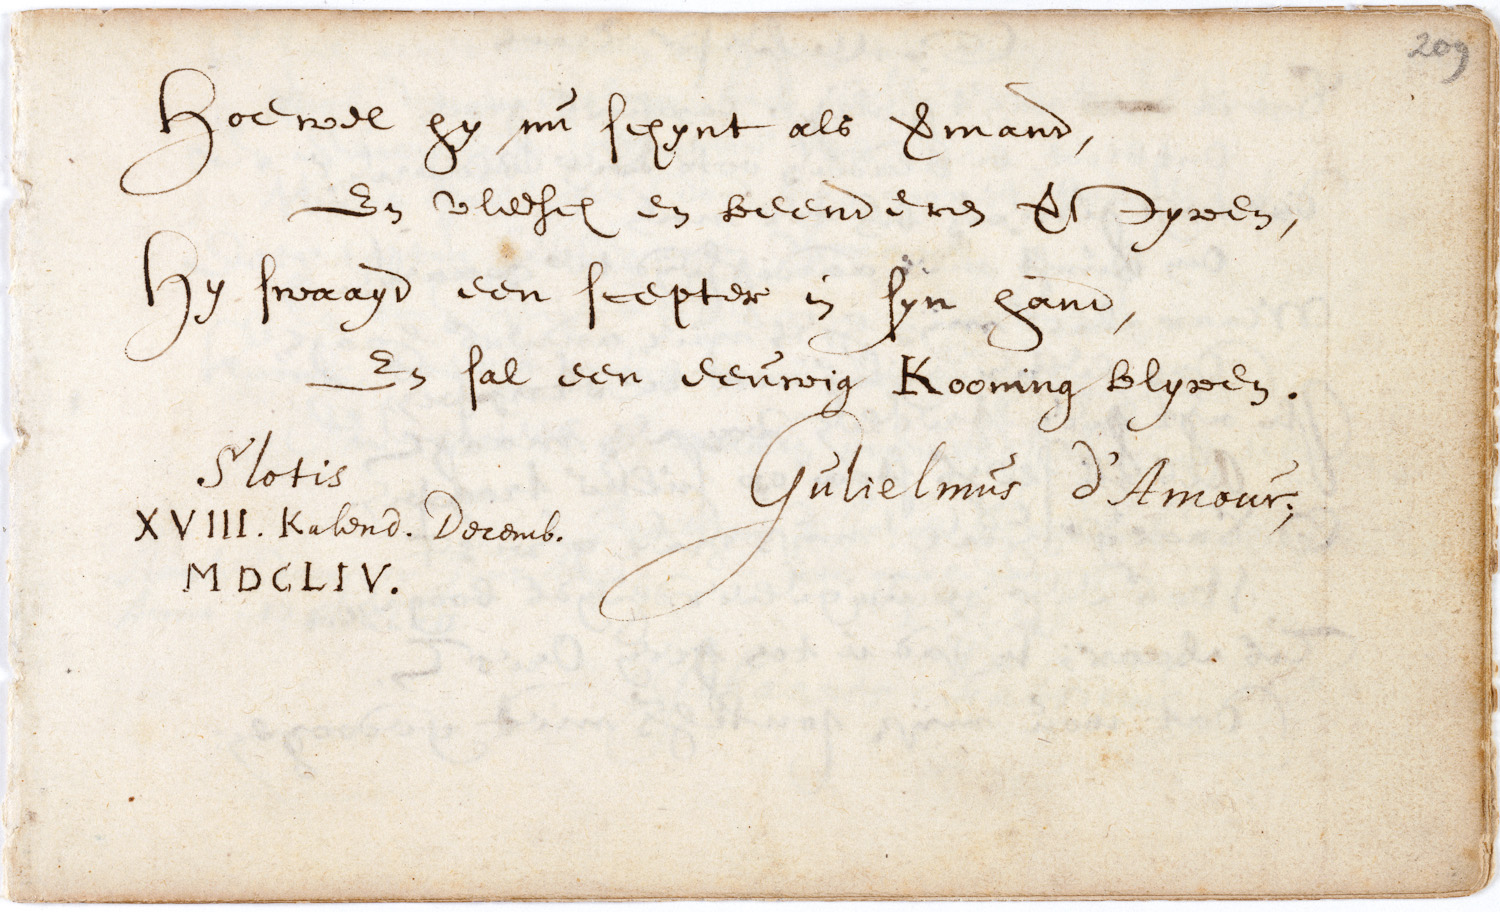 209
Hoewel hy nu schynt als vermand,
En vleesch en beenderen verstyven,
Hy swaayd een scepter in syn hand,
En sal een eeuwig Kooning blyven.
Slotis
XVIII. Kalend. Decemb.
MDCLIV.
Gulielmus d'Amour;